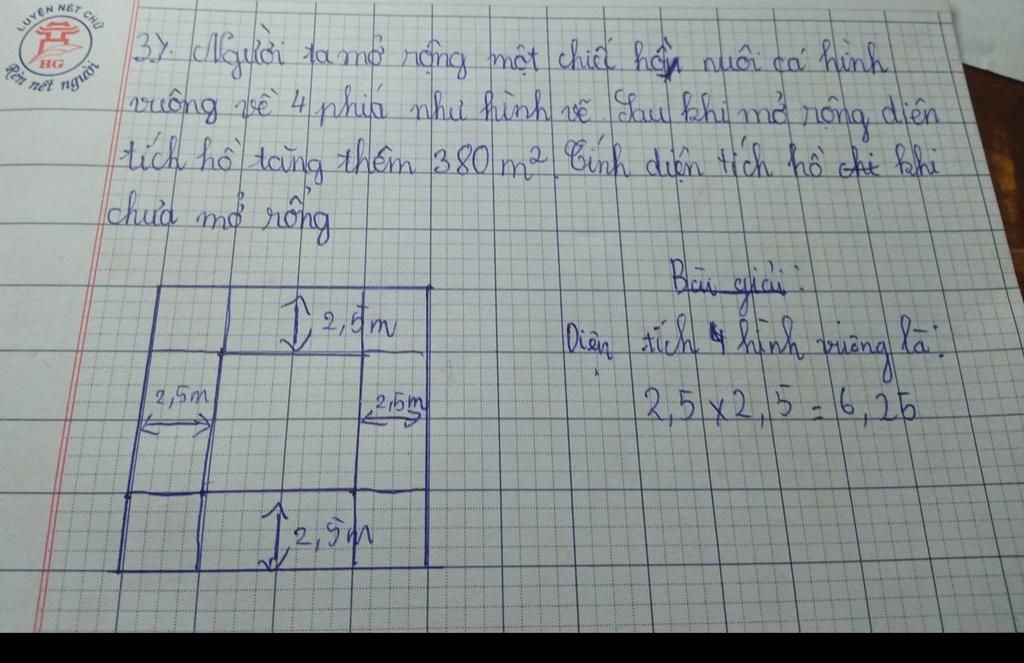 LUYỆN NÉT CHỮ
HG
Rèn nết người
3). Người ta mở rộng một chiếc hồ nuôi cá hình
vuông về 4 phía như hình vẽ. Sau khi mở rộng diện
tích hồ tăng thêm 380 m². Tính diện tích hồ khi
chưa mở rộng
Bài giải:
2,5m
Diện tích 4 hình vuông là:
2,5m 2,5m
2,5 x 2,5 = 6,25
2,5m